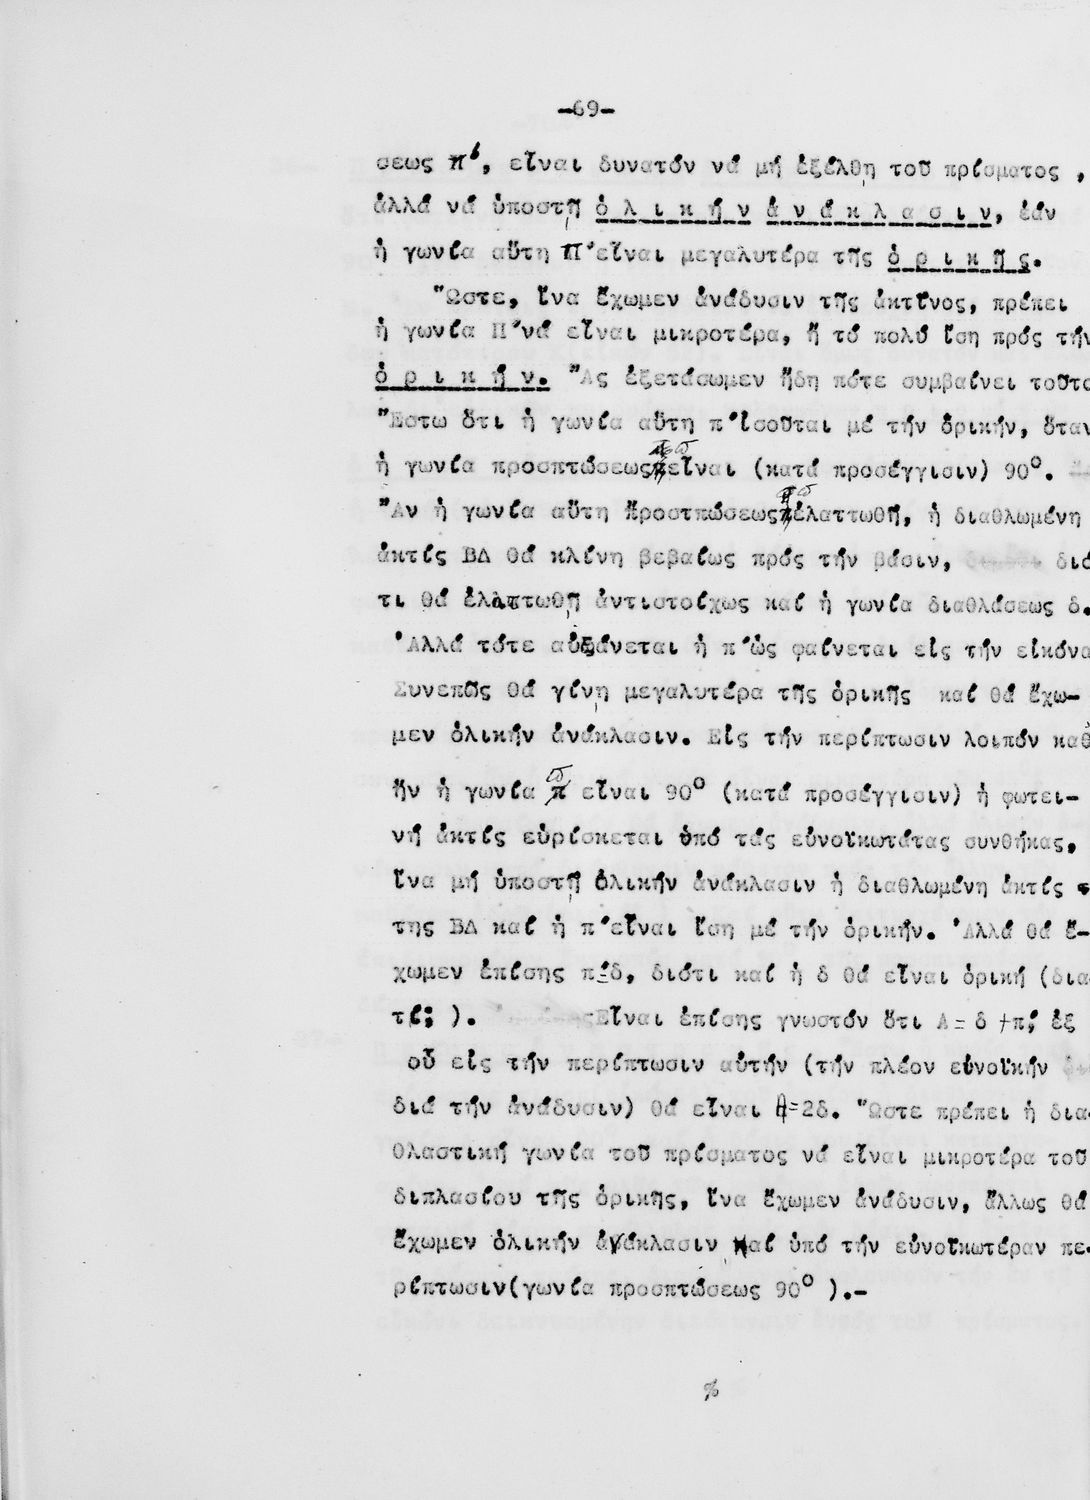 -69-
σεως π', εἶναι δυνατόν νά μή ἐξέλθῃ τοῦ πρίσματος ,
ἀλλά νά ὑποστῇ ὁ λ ι κ ή ν ἀ ν ά κ λ α σ ι ν, ἐάν
ἡ γωνία αὕτη Π'εἶναι μεγαλυτέρα τῆς ὁ ρ ι κ ῆ ς.
"Ωστε, ἵνα ἔχωμεν ἀνάδυσιν τῆς ἀκτῖνος, πρέπει
ἡ γωνία Π'νά εἶναι μικροτέρα, ἤ τό πολύ ἴση πρός τήν
ὁ ρ ι κ ή ν. "Ας ἐξετάσωμεν ἤδη πότε συμβαίνει τοῦτο
"Εστω ὅτι ἡ γωνία αὕτη π'ἰσοῦται μέ τήν ὁρικήν, ὅταν
ἡ γωνία προσπτώσεως ϖ εἶναι (κατά προσέγγισιν) 90°.
"Αν ἡ γωνία αὕτη προσπτώσεως ϖ ἐλαττωθῇ, ἡ διαθλωμένη
ἀκτίς ΒΔ θά κλίνῃ βεβαίως πρός τήν βάσιν, διό
τι θά ἐλαττωθῇ ἀντιστοίχως καί ἡ γωνία διαθλάσεως δ.
'Αλλά τότε αὐξάνεται ἡ π'ὡς φαίνεται εἰς τήν εἰκόνα
Συνεπῶς θά γίνῃ μεγαλυτέρα τῆς ὁρικῆς καί θά ἔχω-
μεν ὁλικήν ἀνάκλασιν. Εἰς τήν περίπτωσιν λοιπόν καθ'
ἥν ἡ γωνία ϖ εἶναι 90° (κατά προσέγγισιν) ἡ φωτει-
νή ἀκτίς εὑρίσκεται ὑπό τάς εὐνοϊκωτάτας συνθήκας,
ἵνα μή ὑποστῇ ὁλικήν ἀνάκλασιν ἡ διαθλωμένη ἀκτίς
της ΒΔ καί ἡ π'εἶναι ἴση μέ τήν ὁρικήν. 'Αλλά θά ἔ-
χωμεν ἐπίσης π'=δ, διότι καί ἡ δ θά εἶναι ὁρική (δια
τί; ). Εἶναι ἐπίσης γνωστόν ὅτι Α= δ +π', ἐξ
οὗ εἰς τήν περίπτωσιν αὐτήν (τήν πλέον εὐνοϊκήν
διά τήν ἀνάδυσιν) θά εἶναι Α=2δ. "Ωστε πρέπει ἡ δια-
θλαστική γωνία τοῦ πρίσματος νά εἶναι μικροτέρα τοῦ
διπλασίου τῆς ὁρικῆς, ἵνα ἔχωμεν ἀνάδυσιν, ἄλλως θά
ἔχωμεν ὁλικήν ἀνάκλασιν καί ὑπό τήν εὐνοϊκωτέραν πε-
ρίπτωσιν(γωνία προσπτώσεως 90° ).-
%